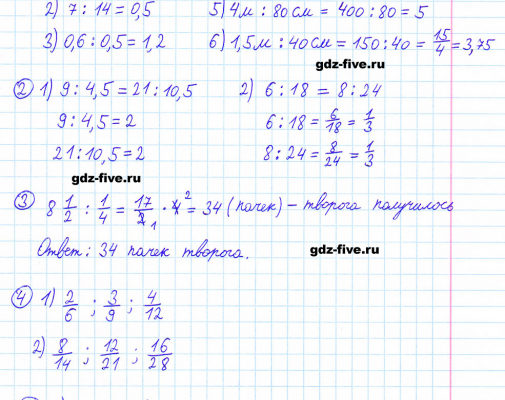 2) 7 : 14 = 0,5 5) 4м : 80см = 400 : 80 = 5
3) 0,6 : 0,5 = 1,2 6) 1,5м : 40см = 150 : 40 = 15/4 = 3,75
gdz-five.ru
② 1) 9 : 4,5 = 21 : 10,5 2) 6 : 18 = 8 : 24
9 : 4,5 = 2 6 : 18 = 6/18 = 1/3
21 : 10,5 = 2 8 : 24 = 8/24 = 1/3
gdz-five.ru
③ 8 1/2 : 1/4 = 17/2 1 · 4 2 = 34 (пачек) – творога получилось
Ответ: 34 пачек творога.
gdz-five.ru
④ 1) 2/6 ; 3/9 ; 4/12
2) 8/14 ; 12/21 ; 16/28